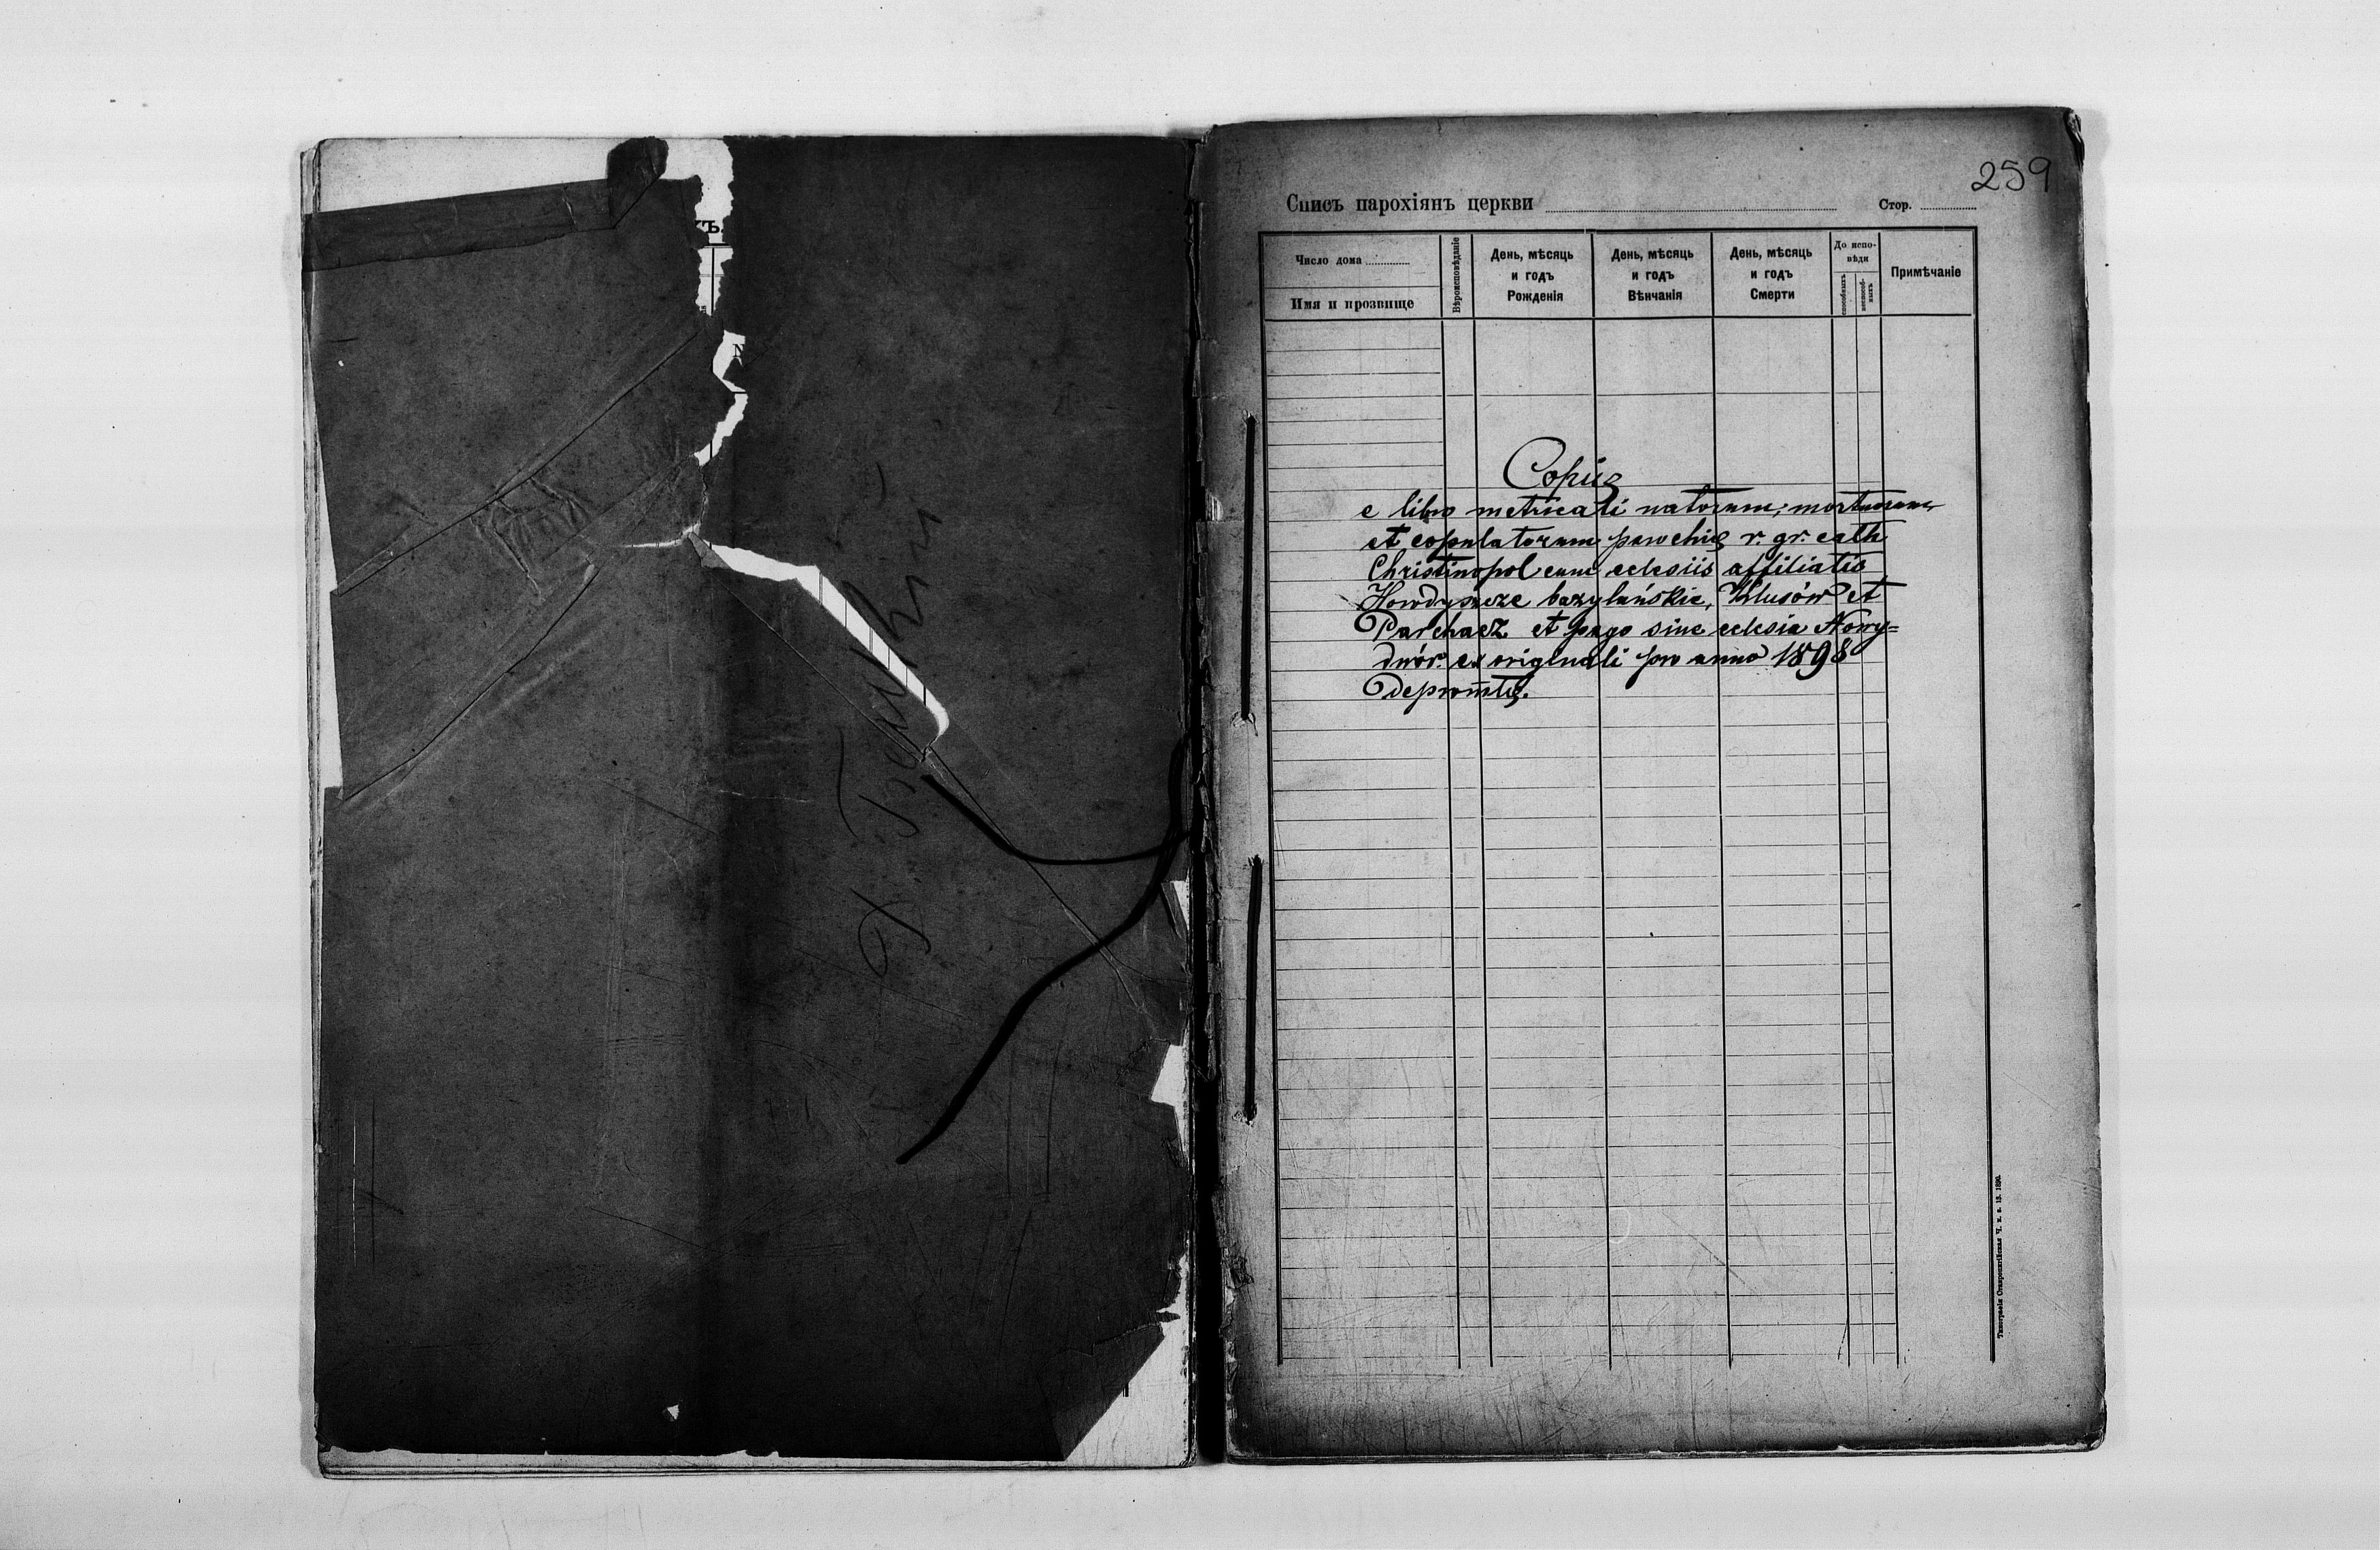 259
Списъ парохіянъ церкви
Стор.
Число дома
Имя и прозвище
Вѣроисповѣданіе
День, мѣсяць и годъ Рожденія
День, мѣсяць и годъ Вѣнчанія
День, мѣсяць и годъ Смерти
До испо-вѣди
способныхъ
неспособ-ныхъ
Примѣчаніе
Copię
e libro metricali natorum, mortuorum
et copulatorum parochię r. gr. cath
Christinopol cum eclesiis affiliatis
bazylańskie, Klusów et
Parchacz et pago sine eclesia Nowy=
dwór ex originali pro anno 1898
depromtę.
Типографія Ставропигійская Ч. 1896.